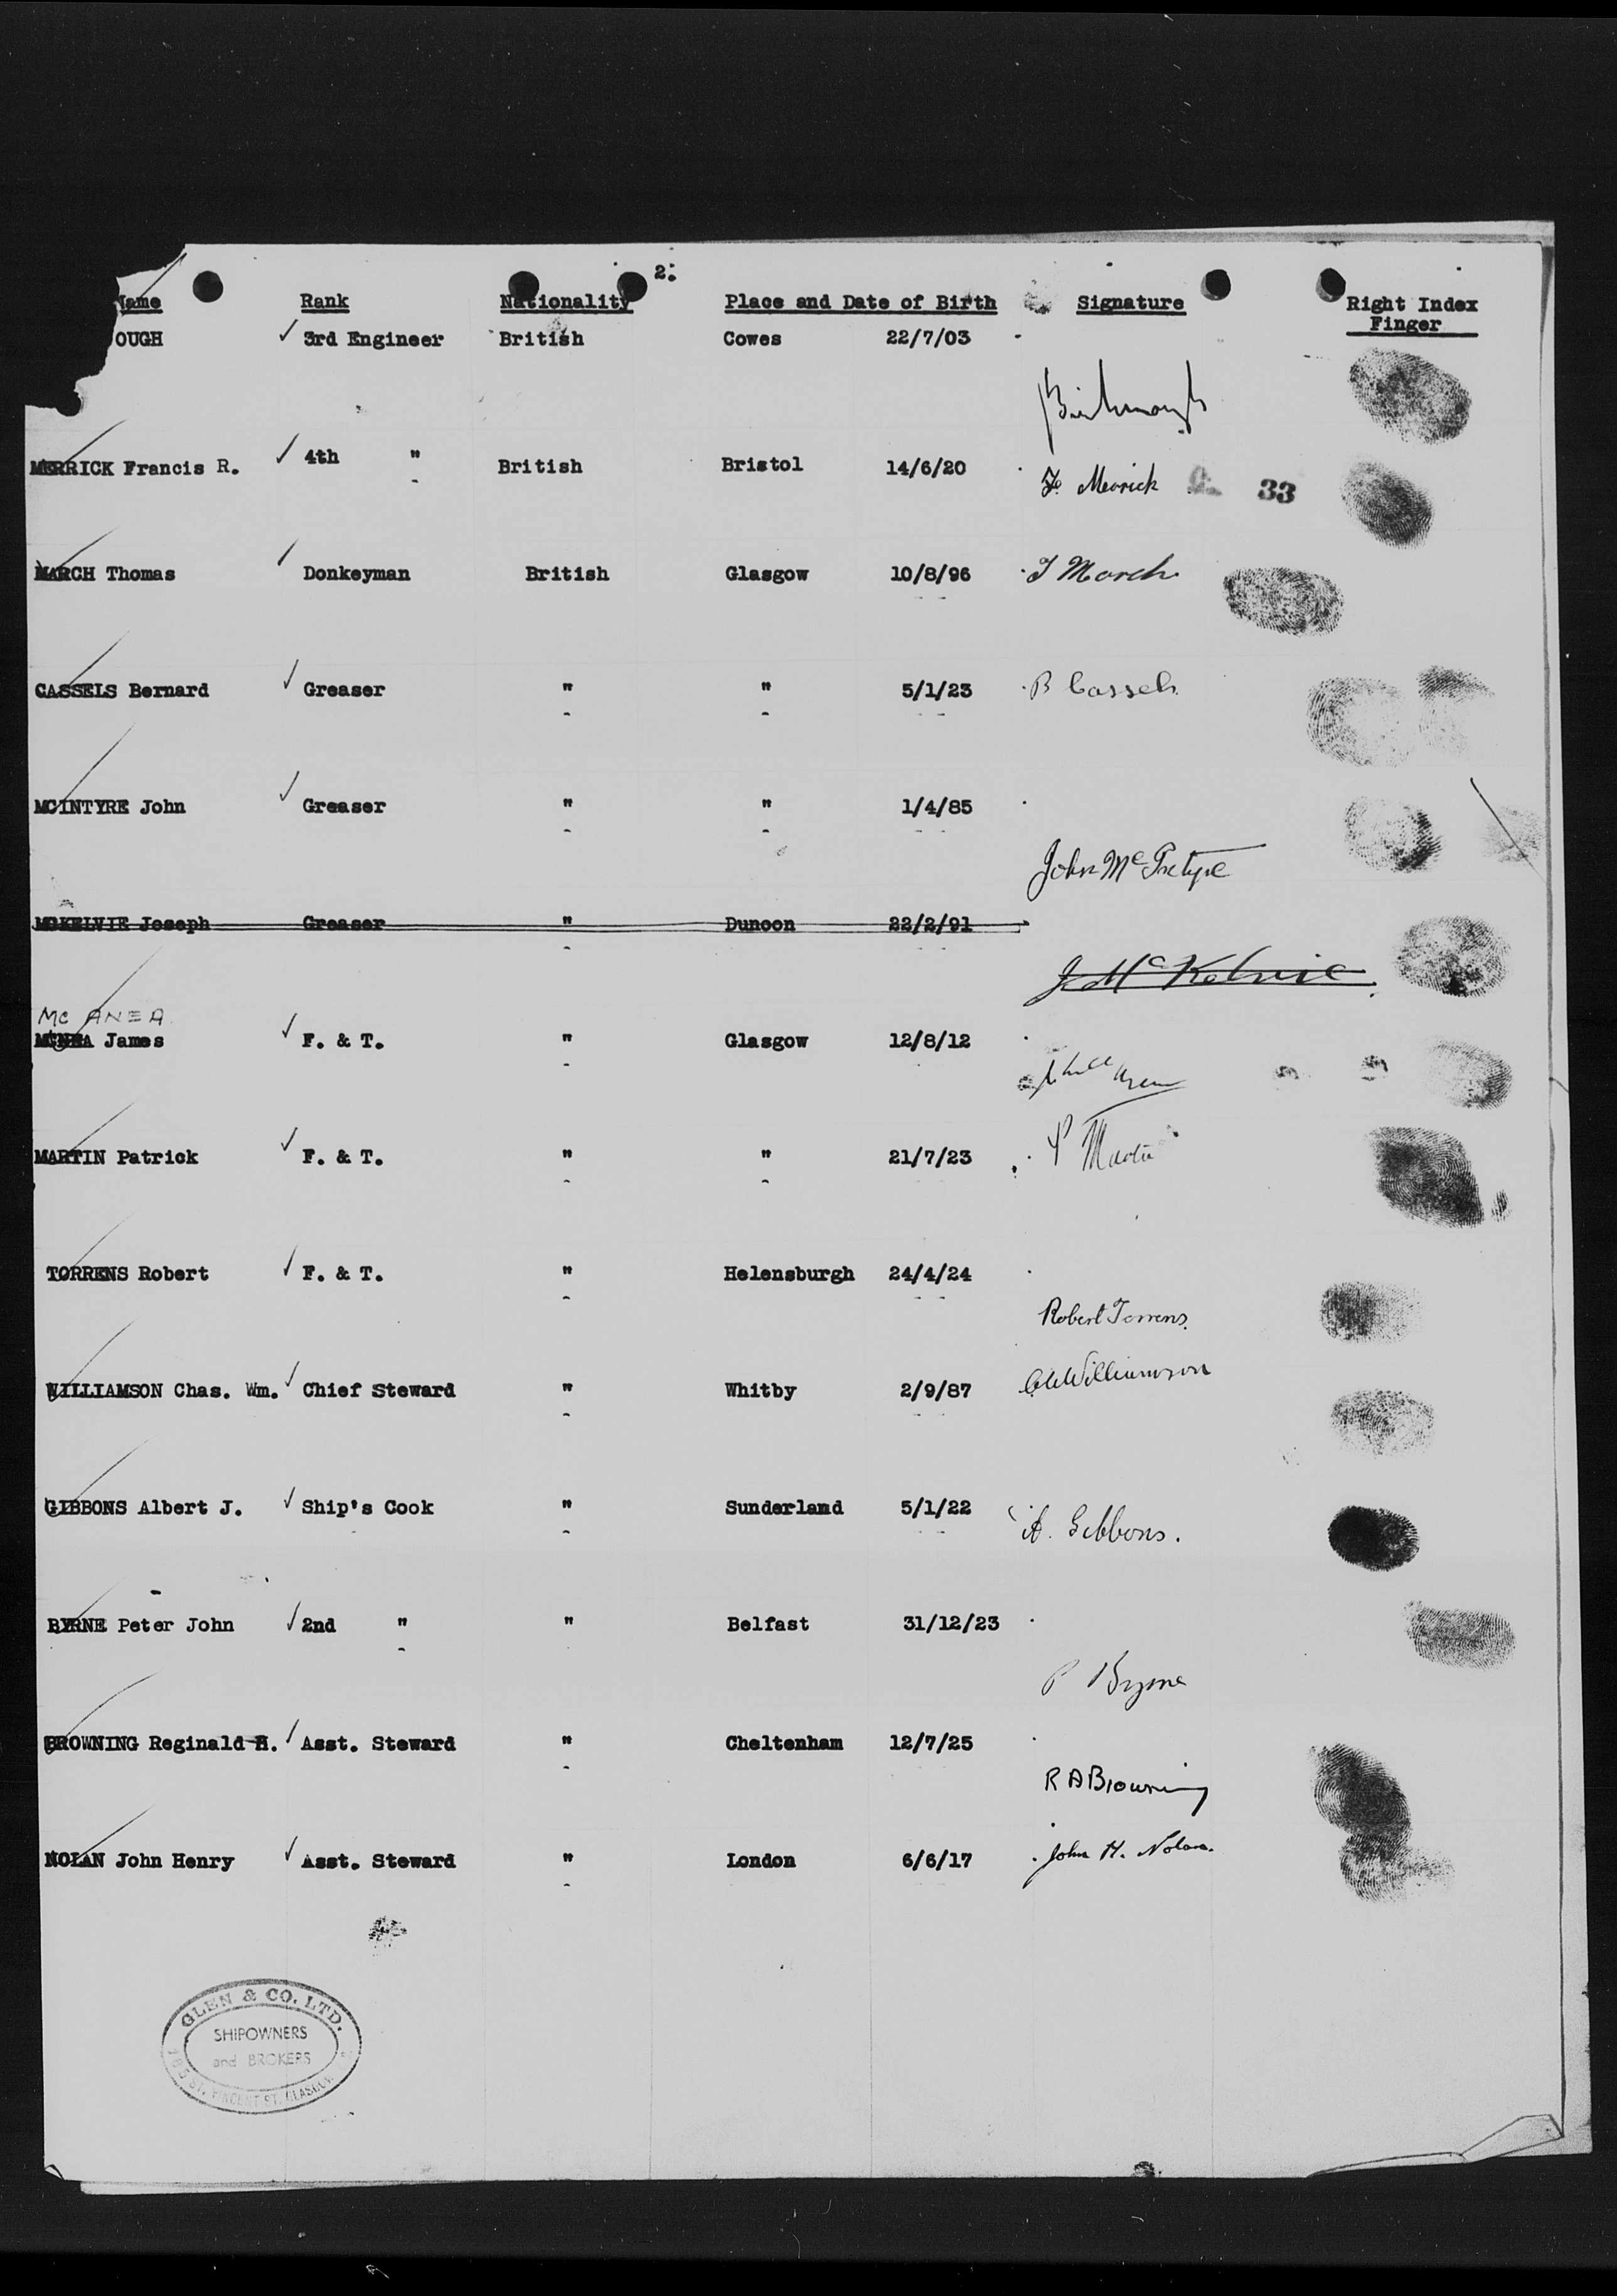 2.
Name Rank Nationality Place and Date of Birth Signature Right Index Finger
OUGH 3rd Engineer British Cowes 22/7/03
MERRICK Francis R. 4th " British Bristol 14/6/20 F. Merrick 33
MARCH Thomas Donkeyman British Glasgow 10/8/96 T March
CASSELS Bernard Greaser " " 5/1/23 B Cassels
MCINTYRE John Greaser " " 1/4/85
John McIntyre
MCKELVIE Joseph Greaser " Dunoon 22/2/91
J McKelvie
Mc ANEA
James F. & T. " Glasgow 12/8/12
MARTIN Patrick F. & T. " " 21/7/23 P Martin
TORRENS Robert F. & T. " Helensburgh 24/4/24
Robert Torrens
WILLIAMSON Chas. Wm. Chief Steward " Whitby 2/9/87 C W Williamson
GIBBONS Albert J. Ship's Cook " Sunderland 5/1/22 A. Gibbons.
BYRNE Peter John 2nd " " Belfast 31/12/23
P Byrne
BROWNING Reginald Asst. Steward " Cheltenham 12/7/25
R A Browning
NOLAN John Henry Asst. Steward " London 6/6/17 John H. Nolan.
GLEN & CO. LTD.
SHIPOWNERS
and BROKERS
ST. VINCENT ST. GLASGOW